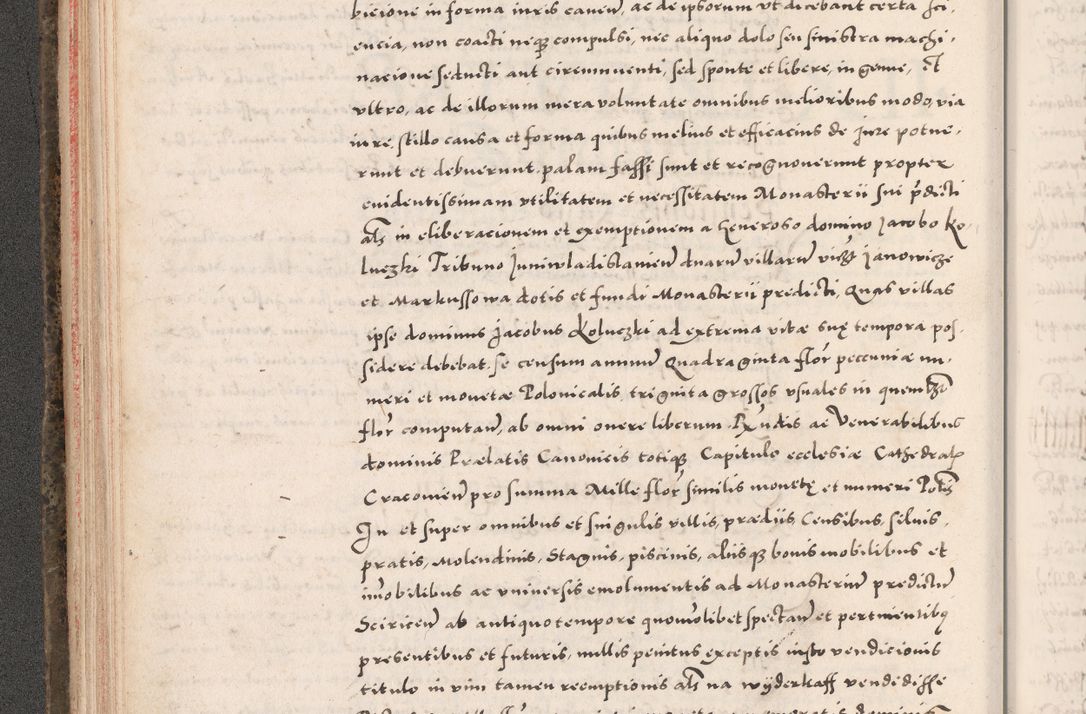 bicione in forma iuris caven̄, ac de ipsorum ut dicebant certa sci,
encia, non coacti neq̃ compulsi, nec aliquo dolo seu sinistra machi,
nacione seducti aut circumventi, sed sponte et libere, in genue, et
ultro, ac de illorum mera voluntate omnibus melioribus modo, via
iure, stillo causa et forma quibus melius et efficacius de jure potue,
runt et debuerunt, palam fassi sunt et recognouerunt propter
evidentissimam utilitatem et necessitatem Monasterii sui p̃dicti
als in eliberacionem et exemptionem a Generoso domino Jacobo Ko,
luczki Tribuno Juniwladislauien̄ duarum villarum vicz Janowicze
et Markussowa dotis et fundi Monasterii predicti, Quas villas
ipse dominus Jacobus Koluczki ad extrema vitæ suę tempora pos,
sidere debebat, se censum annuum Quadraginta flor̃ peccuniæ nu,
meri et monetæ Polonicalis, triginta grossos usuales in quemlzt
flor̃ computan̄, ab omni onere liberum Rn̄dis ac Venerabilibus
dominis Prælatis Canonicis totiq̃ Capitulo ecclesiæ Cathedral
Cracovien̄ pro summa Mille flor̃ similis monetę et numeri Polis
In et super omnibus et singulis villis, prædiis, Censibus, siluis,
pratis, Molendinis, Stagnis, piscinis, aliisq̃ bonis mobilibus et
im̄obilibus ac universis emolumentis ad Monasterium predictum
Sciricen̄ ab antiquo tempore quomōlibet spectan̄ et pertinentibq
presentibus et futuris, nullis penitus exceptis insto vendicionis
titulo in vim tamen reemptionis als na wyderkaff vendedisse